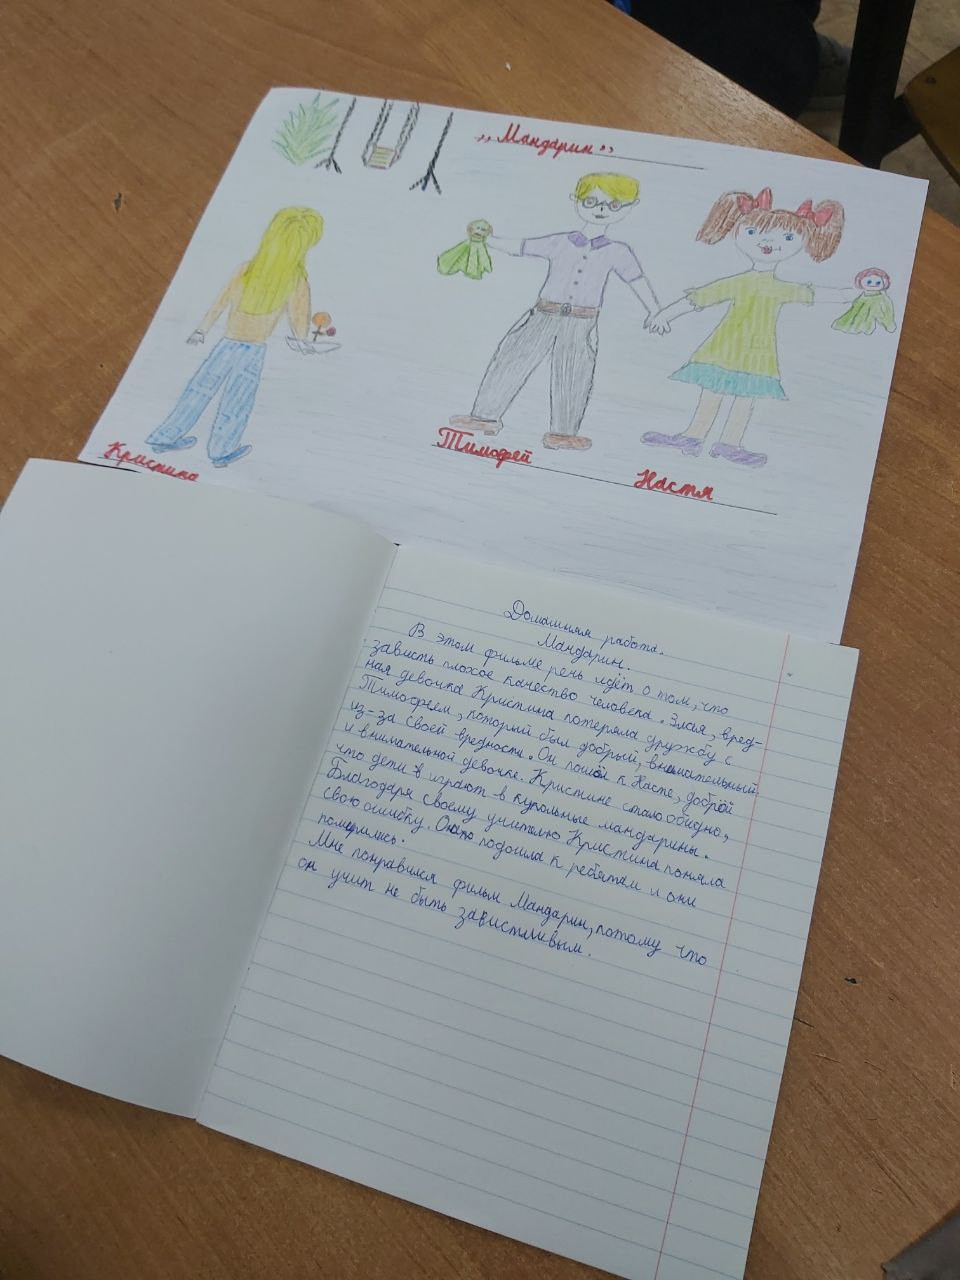 „Мандарин”
Кристина
Тимофей
Настя
Домашняя работа.
Мандарин.
В этом фильме речь идёт о том, что
зависть плохое качество человека. Злая, вред-
ная девочка Кристина потеряла дружбу с
Тимофеем, который был добрый, внимательный
из-за своей вредности. Он пошёл к Насте, доброй
и внимательной девочке. Кристине стало обидно,
что дети в играют в кукольные мандарины.
Благодаря своему учителю Кристина поняла
свою ошибку. Она подошла к ребятам и они
помирились.
Мне понравился фильм Мандарин, потому что
он учит не быть завистливым.